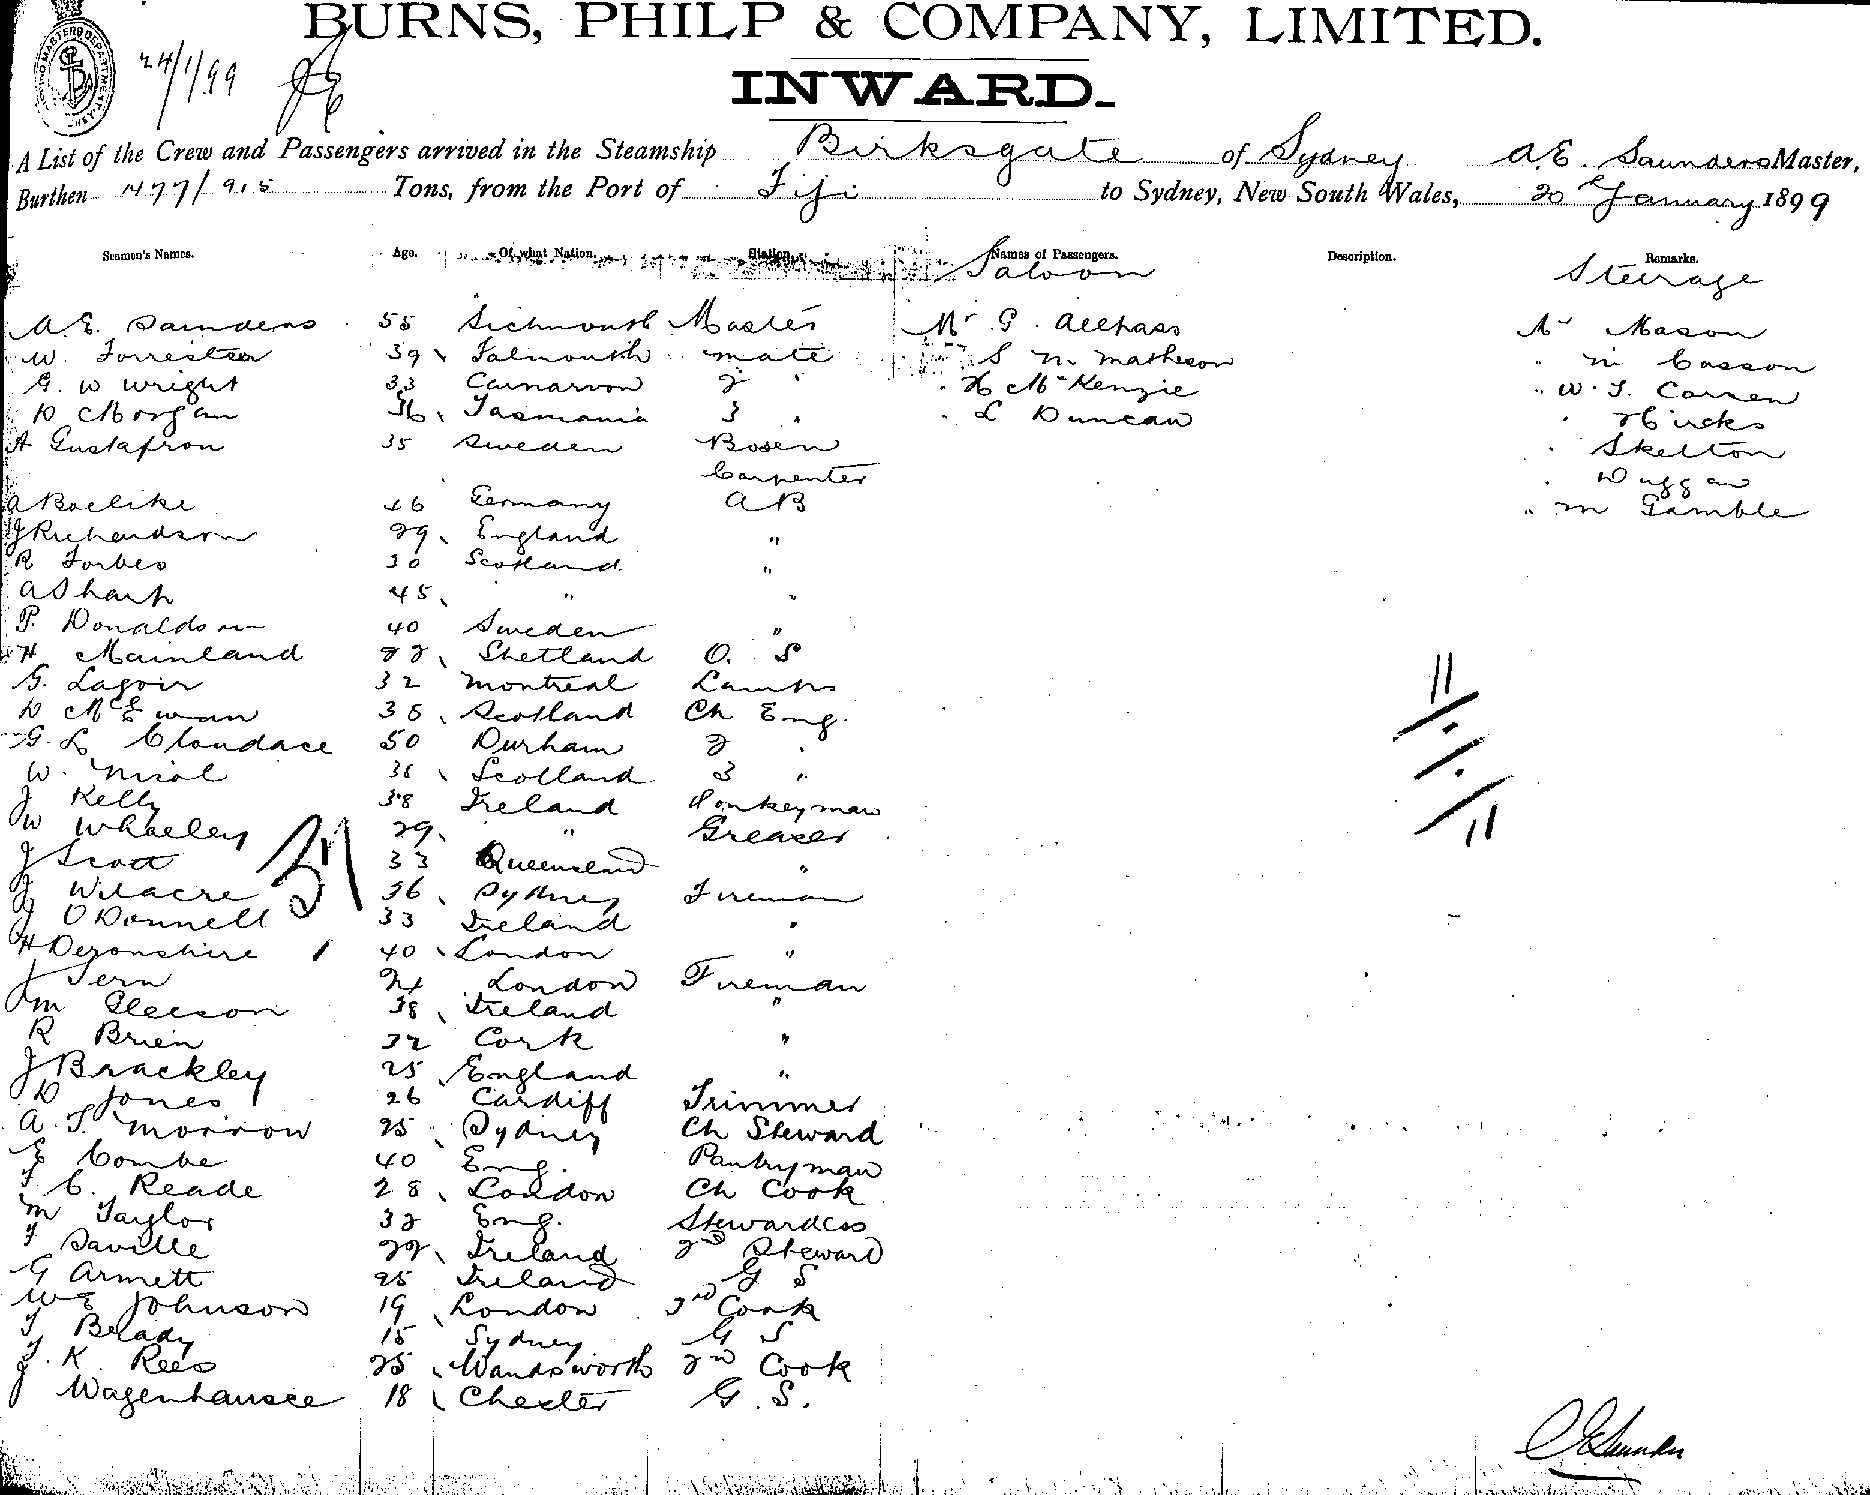 BURNS, PHILP & COMPANY, LIMITED.
24/1/99
INWARD.
A List of the Crew and Passengers arrived in the Steamship Birksgate of Sydney A.E. Saunders Master,
Burthen 1477/915 Tons, from the Port of Fiji to Sydney, New South Wales, 20 January 1899
Seamen's Names. Age. Of what Nation. Station. Names of Passengers. Description. Remarks.
Saloon Steerage
A.E. Saunders 55 Master Mr G. Mr Mason
W. Forrester 39 Falmouth mate " S M. Matheson " M Casson
G. W Wright 33 Carnarvon 2 " " H McKenzie " W. J. Curren
D Morgan 36 Tasmania 3 " " L Duncan " Hicks
A Gustafson 35 Sweden Bosen " Skelton
Carpenter " Duggan
A Baelike 46 Germany AB " M Gamble
J Richardson 29 England "
R Forbes 30 Scotland "
A Sharp 45 " "
P. Donaldson 40 Sweden "
H Mainland 22 Shetland O. S
G. Lagoir 32 Montreal Lamps
D McEwan 35 Scotland Ch Eng.
G. L Cloudace 50 Durham 2 "
W. Nisol 36 Scotland 3 "
J Kelly 38 Ireland Donkeyman
W Whaeley 29 " Greaser
J Scott 33 Queensland "
J Wilacre 36 Sydney Fireman
J O'Donnell 33 Ireland "
H Devonshire 40 London "
37
J Fern 24 London Fireman
M Gleeson 38 Ireland "
R Brien 32 Cork "
J Brackley 25 England "
D Jones 26 Cardiff Trimmer
A. T. Morrow 25 Sydney Ch Steward
E Combe 40 Eng. Pantryman
F C. Reade 28 London Ch Cook
M Taylor 32 Eng. Stewardess
F Saville 22 Ireland 2nd Steward
G Armett 25 Ireland G S
W E Johnson 19 London 3rd Cook
T Brady 15 Sydney G S
J. K. Rees 25 Wandsworth 2nd Cook
J Wagenhausee 18 Chester G. S.
11
11
A E Saunders